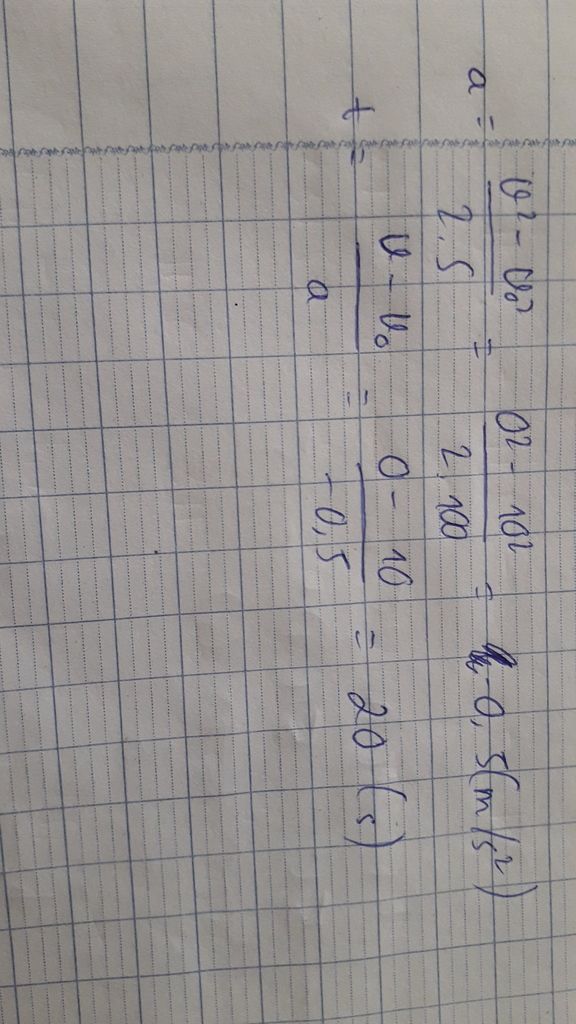 a = \frac{v^2 - v_0^2}{2.S} = \frac{0^2 - 10^2}{2.100} = -0,5 (m/s^2)
t = \frac{v - v_0}{a} = \frac{0 - 10}{-0,5} = 20 (s)